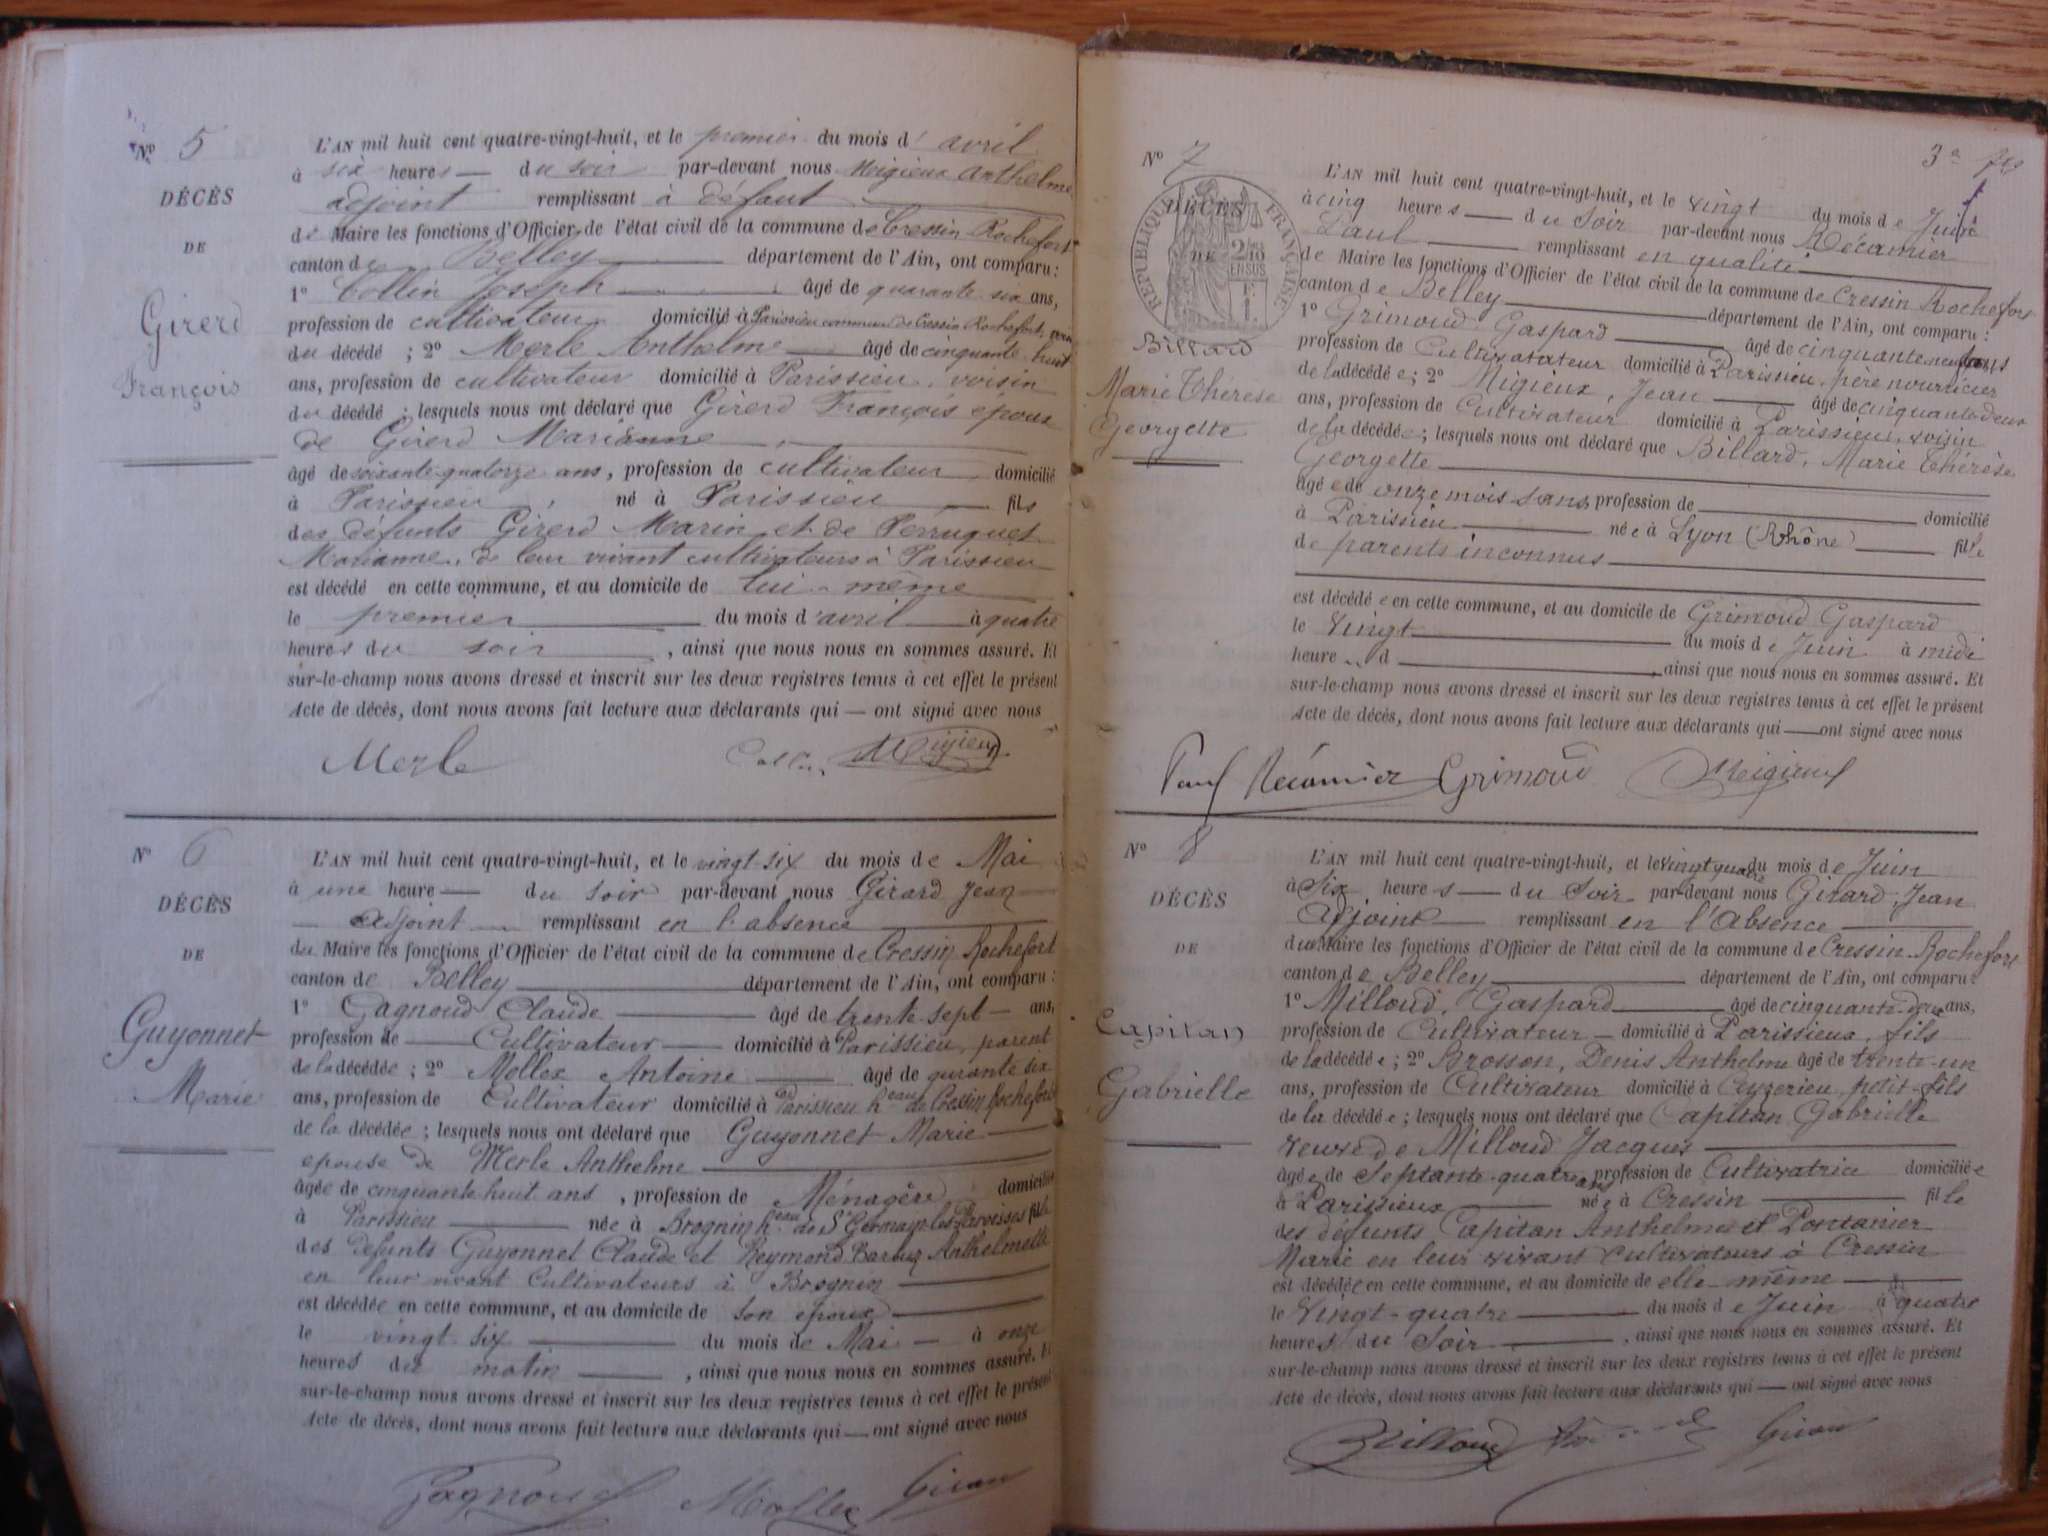 Nº 5
DÉCÈS
DE
Girerd
François
L'AN mil huit cent quatre-vingt-huit, et le premier du mois d'avril
à six heures du soir par-devant nous Meigieux Anthelme
adjoint remplissant à défaut
de Maire les fonctions d'Officier de l'état civil de la commune de Cressin Rochefort
canton de Belley département de l'Ain, ont comparu :
1º Collin Joseph âgé de quarante six ans,
profession de cultivateur domicilié à Parissieu commune de Cressin Rochefort,
du décédé ; 2º Merle Anthelme âgé de cinquante huit
ans, profession de cultivateur domicilié à Parissieu, voisin
du décédé ; lesquels nous ont déclaré que Girerd François époux
de Girerd Marianne
âgé de soixante-quatorze ans, profession de cultivateur domicilié
à Parissieu né à Parissieu fils
des défunts Girerd Marin et de Perruquet
Marianne, de leur vivant cultivateurs à Parissieu
est décédé en cette commune, et au domicile de lui-même
le premier du mois d'avril à quatre
heures du soir, ainsi que nous nous en sommes assuré. Et
sur-le-champ nous avons dressé et inscrit sur les deux registres tenus à cet effet le présent
Acte de décès, dont nous avons fait lecture aux déclarants qui — ont signé avec nous
Merle Collin Meigieux
Nº 6
DÉCÈS
DE
Guyonnet
Marie
L'AN mil huit cent quatre-vingt-huit, et le vingt-six du mois de Mai
à une heure du soir par-devant nous Girard Jean
adjoint remplissant en l'absence
du Maire les fonctions d'Officier de l'état civil de la commune de Cressin Rochefort
canton de Belley département de l'Ain, ont comparu :
1º Gagnoud Claude âgé de trente-sept ans,
profession de Cultivateur domicilié à Parissieu, parent
de la décédée ; 2º Mollex Antoine âgé de qurante six
ans, profession de Cultivateur domicilié à Parissieu heau de Cressin Rochefort
de la décédée ; lesquels nous ont déclaré que Guyonnet Marie
epouse de Merle Anthelme
âgée de cinquante huit ans, profession de Ménagère domicilié
à Parissieu née à Brognin heau de St Germain-les-Paroisses fille
des defunts Guyonnet Claude et Reymond Anthelmette
en leur vivant Cultivateurs à Brognin
est décédée en cette commune, et au domicile de son epoux
le vingt six du mois de Mai à onze
heures du matin, ainsi que nous nous en sommes assuré. Et
sur-le-champ nous avons dressé et inscrit sur les deux registres tenus à cet effet le présent
Acte de décès, dont nous avons fait lecture aux déclarants qui — ont signé avec nous
Gagnoud Mollex Girard
3e
Nº 7
DÉCÈS
DE
RÉPUBLIQUE FRANÇAISE
2/10 EN SUS
Billard
Marie Thérèse
Georgette
L'AN mil huit cent quatre-vingt-huit, et le vingt du mois de Juin
à cinq heures du Soir par-devant nous Récamier
Paul remplissant en qualité
de Maire les fonctions d'Officier de l'état civil de la commune de Cressin Rochefort
canton de Belley département de l'Ain, ont comparu :
1º Grimoud Gaspard âgé de cinquante neuf ans
profession de Cultivatateur domicilié à Parissieu, père nourricier
de la décédée ; 2º Migieux, Jean âgé de cinquante-deux
ans, profession de Cultivateur domicilié à Parissieu, voisin
de la décédée ; lesquels nous ont déclaré que Billard, Marie Thérèse
Georgette
âgée de onze mois sans profession de domicilié
à Parissieu née à Lyon (Rhône) fille
de parents inconnus
est décédée en cette commune, et au domicile de Grimoud Gaspard
le Vingt du mois de Juin à midi
heure d, ainsi que nous nous en sommes assuré. Et
sur-le-champ nous avons dressé et inscrit sur les deux registres tenus à cet effet le présent
Acte de décès, dont nous avons fait lecture aux déclarants qui — ont signé avec nous
Paul Récamier Grimoud Meigieux
Nº 8
DÉCÈS
DE
Capitan
Gabrielle
L'AN mil huit cent quatre-vingt-huit, et le vingt quatre du mois de Juin
à Six heures du Soir par-devant nous Girard, Jean
Adjoint remplissant en l'Absence
du Maire les fonctions d'Officier de l'état civil de la commune de Cressin Rochefort
canton de Belley département de l'Ain, ont comparu :
1º Milloud, Gaspard âgé de cinquante-deux ans,
profession de Cultivateur domicilié à Parissieux, fils
de la décédée ; 2º Brosson, Denis Anthelme âgé de trente-un
ans, profession de Cultivateur domicilié à Ceyzerieu petit-fils
de la décédée ; lesquels nous ont déclaré que Capitan Gabrielle
veuve de Milloud Jacques
âgée de Septante-quatre ans profession de Cultivatrice domiciliée
à Parissieux née à Cressin fille
des défunts Capitan Anthelme et Pontanier
Marie en leur vivant Cultivateurs à Cressin
est décédée en cette commune, et au domicile de elle-même
le Vingt-quatre du mois de Juin à quatre
heures du Soir, ainsi que nous nous en sommes assuré. Et
sur-le-champ nous avons dressé et inscrit sur les deux registres tenus à cet effet le présent
Acte de décès, dont nous avons fait lecture aux déclarants qui — ont signé avec nous
Milloud Girard